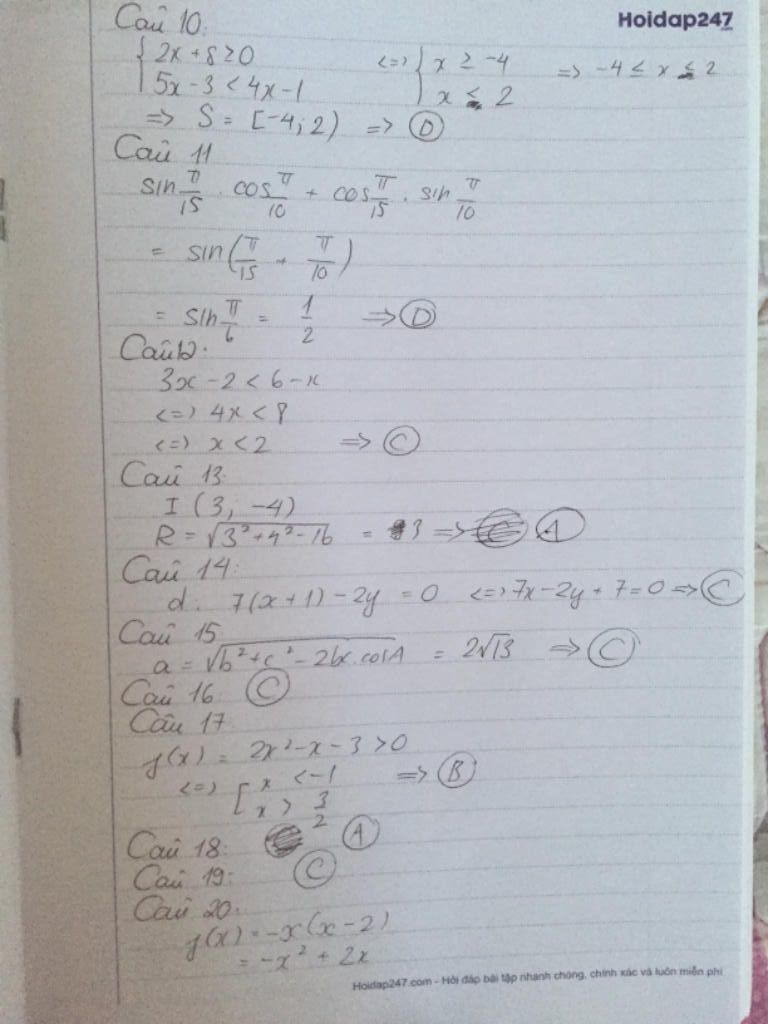 Hoidap247
Câu 10:
{ 2x + 8 ≥ 0
5x - 3 < 4x - 1
<=> { x ≥ -4
x ≤ 2
=> -4 ≤ x ≤ 2
=> S = [-4; 2) => D
Câu 11
sin π/15 . cos π/10 + cos π/15 . sin π/10
= sin(π/15 + π/10)
= sin π/6 = 1/2 => D
Câu 12:
3x - 2 < 6 - x
<=> 4x < 8
<=> x < 2 => C
Câu 13:
I (3, -4)
R = √(3² + 4² - 16) = 3 => A
Câu 14:
d: 7(x + 1) - 2y = 0 <=> 7x - 2y + 7 = 0 => C
Câu 15
a = √(b² + c² - 2bc.cosA) = 2√13 => C
Câu 16: C
Câu 17
f(x) = 2x² - x - 3 > 0
<=> [ x < -1
x > 3/2
=> B
Câu 18: A
Câu 19: C
Câu 20:
f(x) = -x(x - 2)
= -x² + 2x
Hoidap247.com - Hỏi đáp bài tập nhanh chóng, chính xác và luôn miễn phí